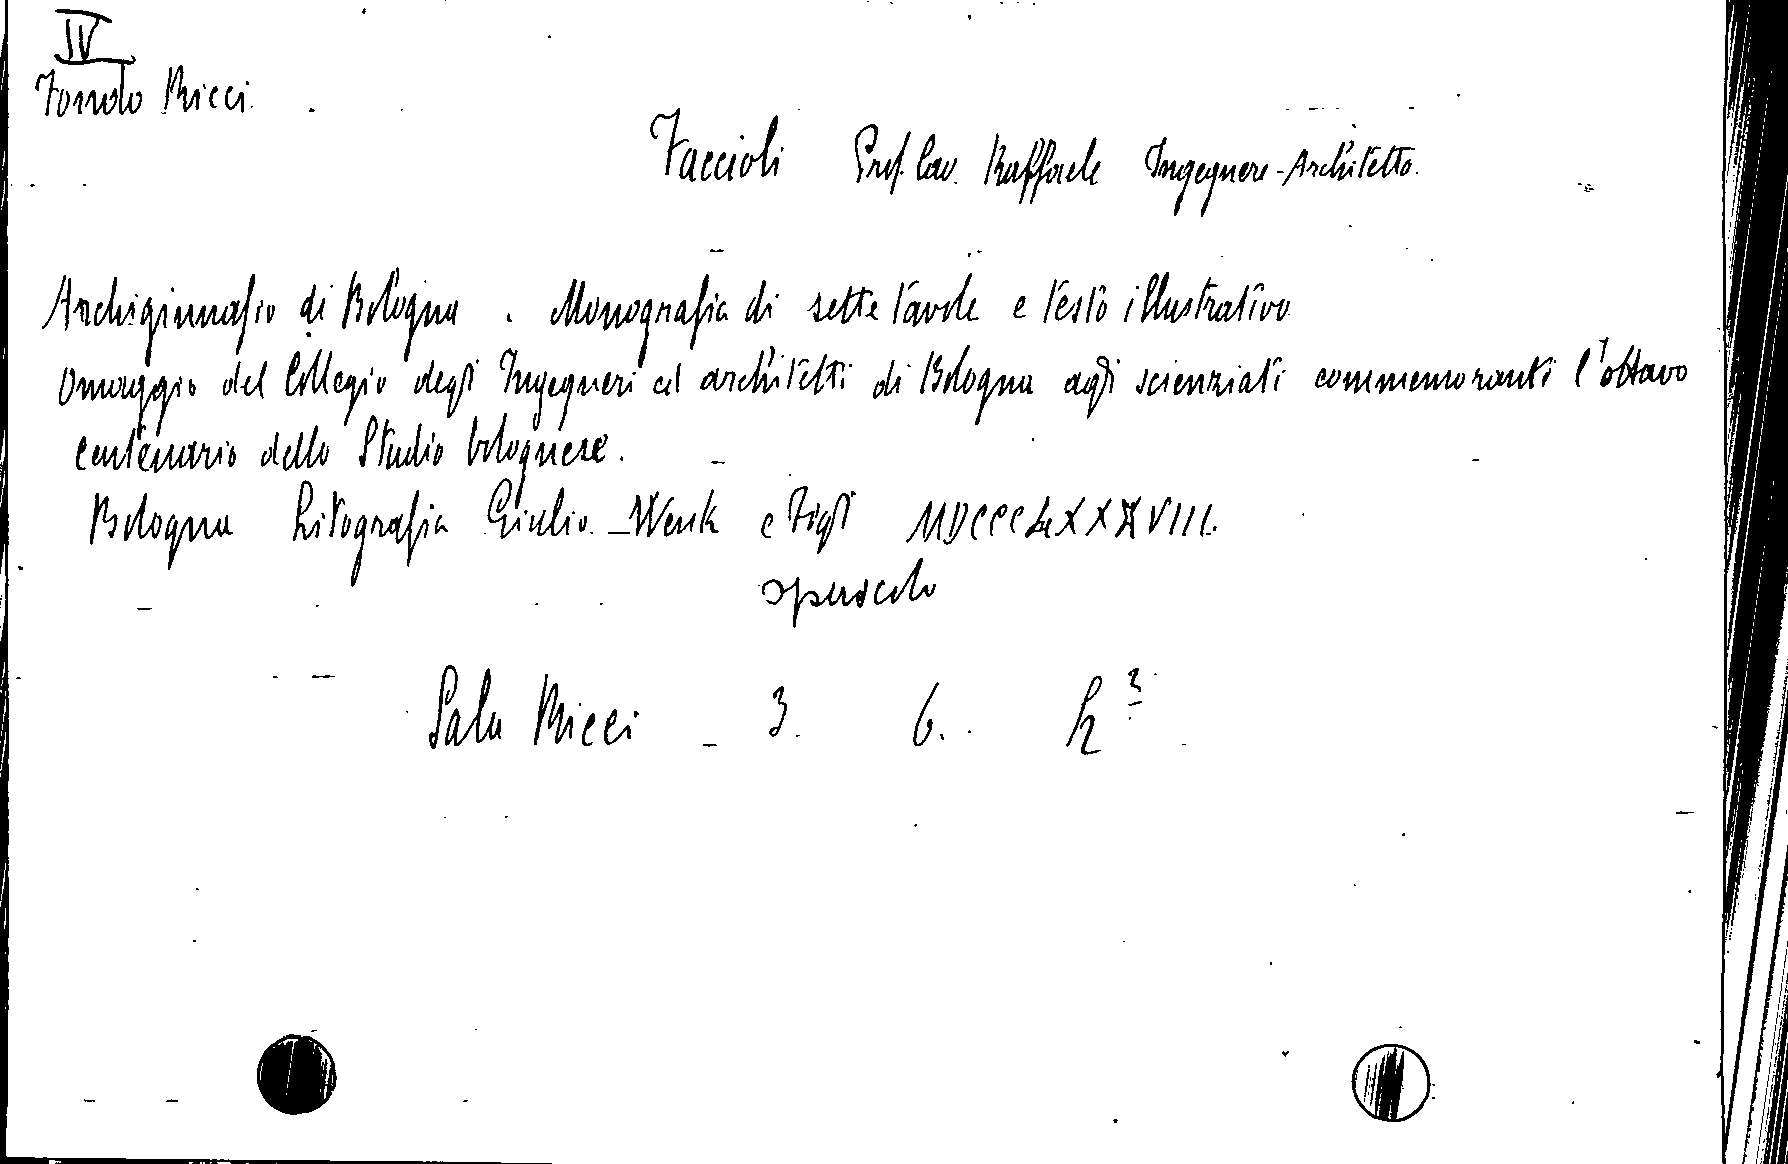 IV
Fondo Ricci
Faccioli Prof. Cav. Raffaele Ingegnere-Architetto.
Archiginnasio di Bologna. Monografia di sette tavole e testo illustrativo
Omaggio del Collegio degli Ingegneri ed architetti di Bologna agli scienziati commemoranti l'ottavo
centenario dello Studio bolognese.
Bologna Litografia Giulio Wenk e Figli MDCCCLXXXVIII.
opuscolo
Sala Ricci 3. 6. h 3